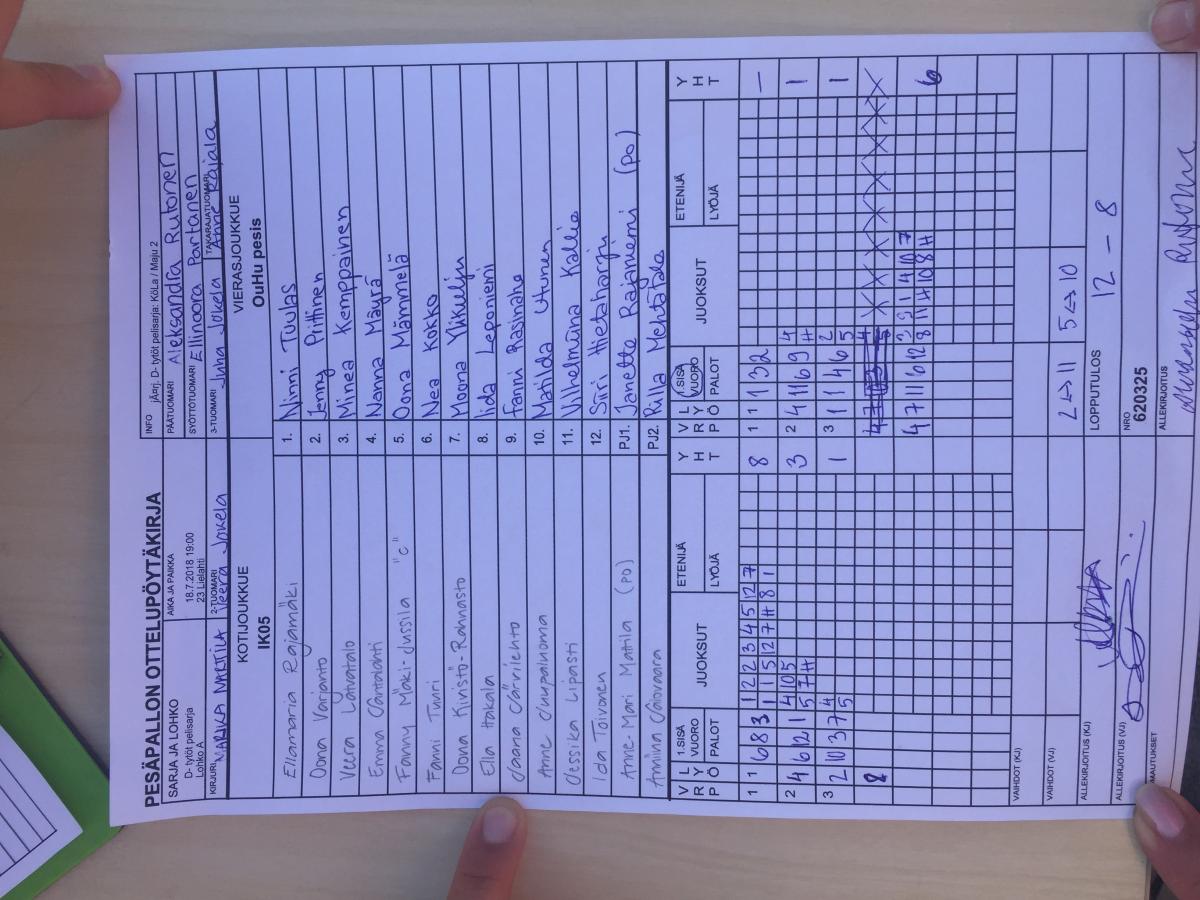 PESÄPALLON OTTELUPÖYTÄKIRJA
SARJA JA LOHKO
D- tytöt pelisarja
Lohko A
AIKA JA PAIKKA
18.7.2018 19:00
23 Lielahti
INFO jÄ¤rj. D- tytöt pelisarja: KöLa / Maju 2
PÄÄTUOMARI Aleksandra Rutonen
SYÖTTÖTUOMARI Ellinoora Partanen
KIRJURI MARIKA MARTILA
2-TUOMARI Veera Jokela
3-TUOMARI Juha Jokela
TAKARAJATUOMARI Anne Rajala
KOTIJOUKKUE
IK05
VIERASJOUKKUE
OuHu pesis
Ellamaria Rajamäki 1. Ninni Tuulas
Oona Varjanto 2. Jenny Piittinen
Veera Latvatalo 3. Minea Kemppainen
Emma 4. Nanna Mäyrä
Fanny Mäki-Jussila "C" 5. Oona Mämmelä
Fanni Tuuri 6. Nea Kokko
Oona Kivistö-Rahnasto 7. Moona Ylikulju
Ella Hakala 8. Iida Leponiemi
Jaana Järvilehto 9. Fanni Rasinaho
Anne 10. Matilda Utunen
Jissika Lipasti 11. Vilhelmiina Kallio
Ida Toivonen 12. Siiri Hietaharju
Anne-Mari Mattila (PO) PJ1. Janette Rajaniemi (PO)
Anniina PJ2. Pulla
V R P L Y Ö 1.SISÄ VUORO PALOT JUOKSUT ETENIJÄ LYÖJÄ Y H T
V R P L Y Ö 1.SISÄ VUORO PALOT JUOKSUT ETENIJÄ LYÖJÄ Y H T
1 1 6 8 3 1 2 2 3 4 5 12 7 8
1 1 5 12 7 H 8 1
1 1 1 3 2 —
2 4 6 12 1 4 10 5 3
5 7 H
2 4 11 6 9 4 1
H
3 2 10 3 7 4 1
5
3 1 1 4 6 2 1
5
8
4 7 11 6 12 2 9 1 4 10 7 6
8 11 H 10 8 H
VAIHDOT (KJ)
VAIHDOT (VJ) 2<->11 5<->10
ALLEKIRJOITUS (KJ)
LOPPUTULOS 12 – 8
ALLEKIRJOITUS (VJ)
NRO
620325
HUOMAUTUKSET
ALLEKIRJOITUS